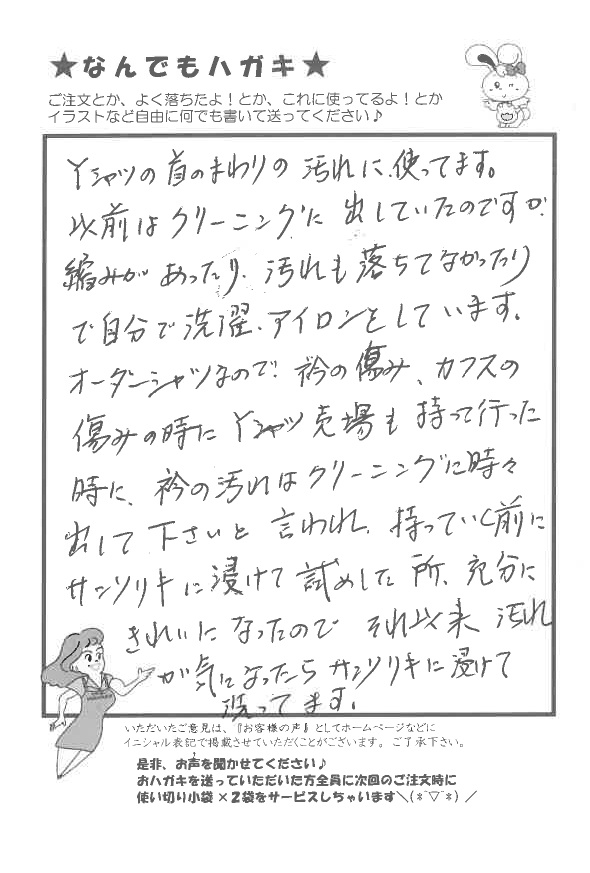 ★なんでもハガキ★
ご注文とか、よく落ちたよ！とか、これに使ってるよ！とか
イラストなど自由に何でも書いて送ってください♪
Yシャツの首のまわりの汚れに、使ってます。
以前はクリーニングに出していたのですが、
縮みがあったり、汚れも落ちてなかったり
で自分で洗濯、アイロンをしています。
オーダーシャツなので、衿の傷み、カフスの
傷みの時にYシャツ売場も持って行った
時に、衿の汚れはクリーニングに時々
出して下さいと言われ、持っていく前に
サンソリキに浸けて試めした所、充分に
きれいになったので それ以来 汚れ
が気になったらサンソリキに浸けて
洗ってます。
いただいたご意見は、『お客様の声』としてホームページなどに
イニシャル表記で掲載させていただくことがございます。ご了承下さい。
是非、お声を聞かせてください♪
おハガキを送っていただいた方全員に次回のご注文時に
使い切り小袋×２袋をサービスしちゃいます＼(*ﾟ▽ﾟ*)／